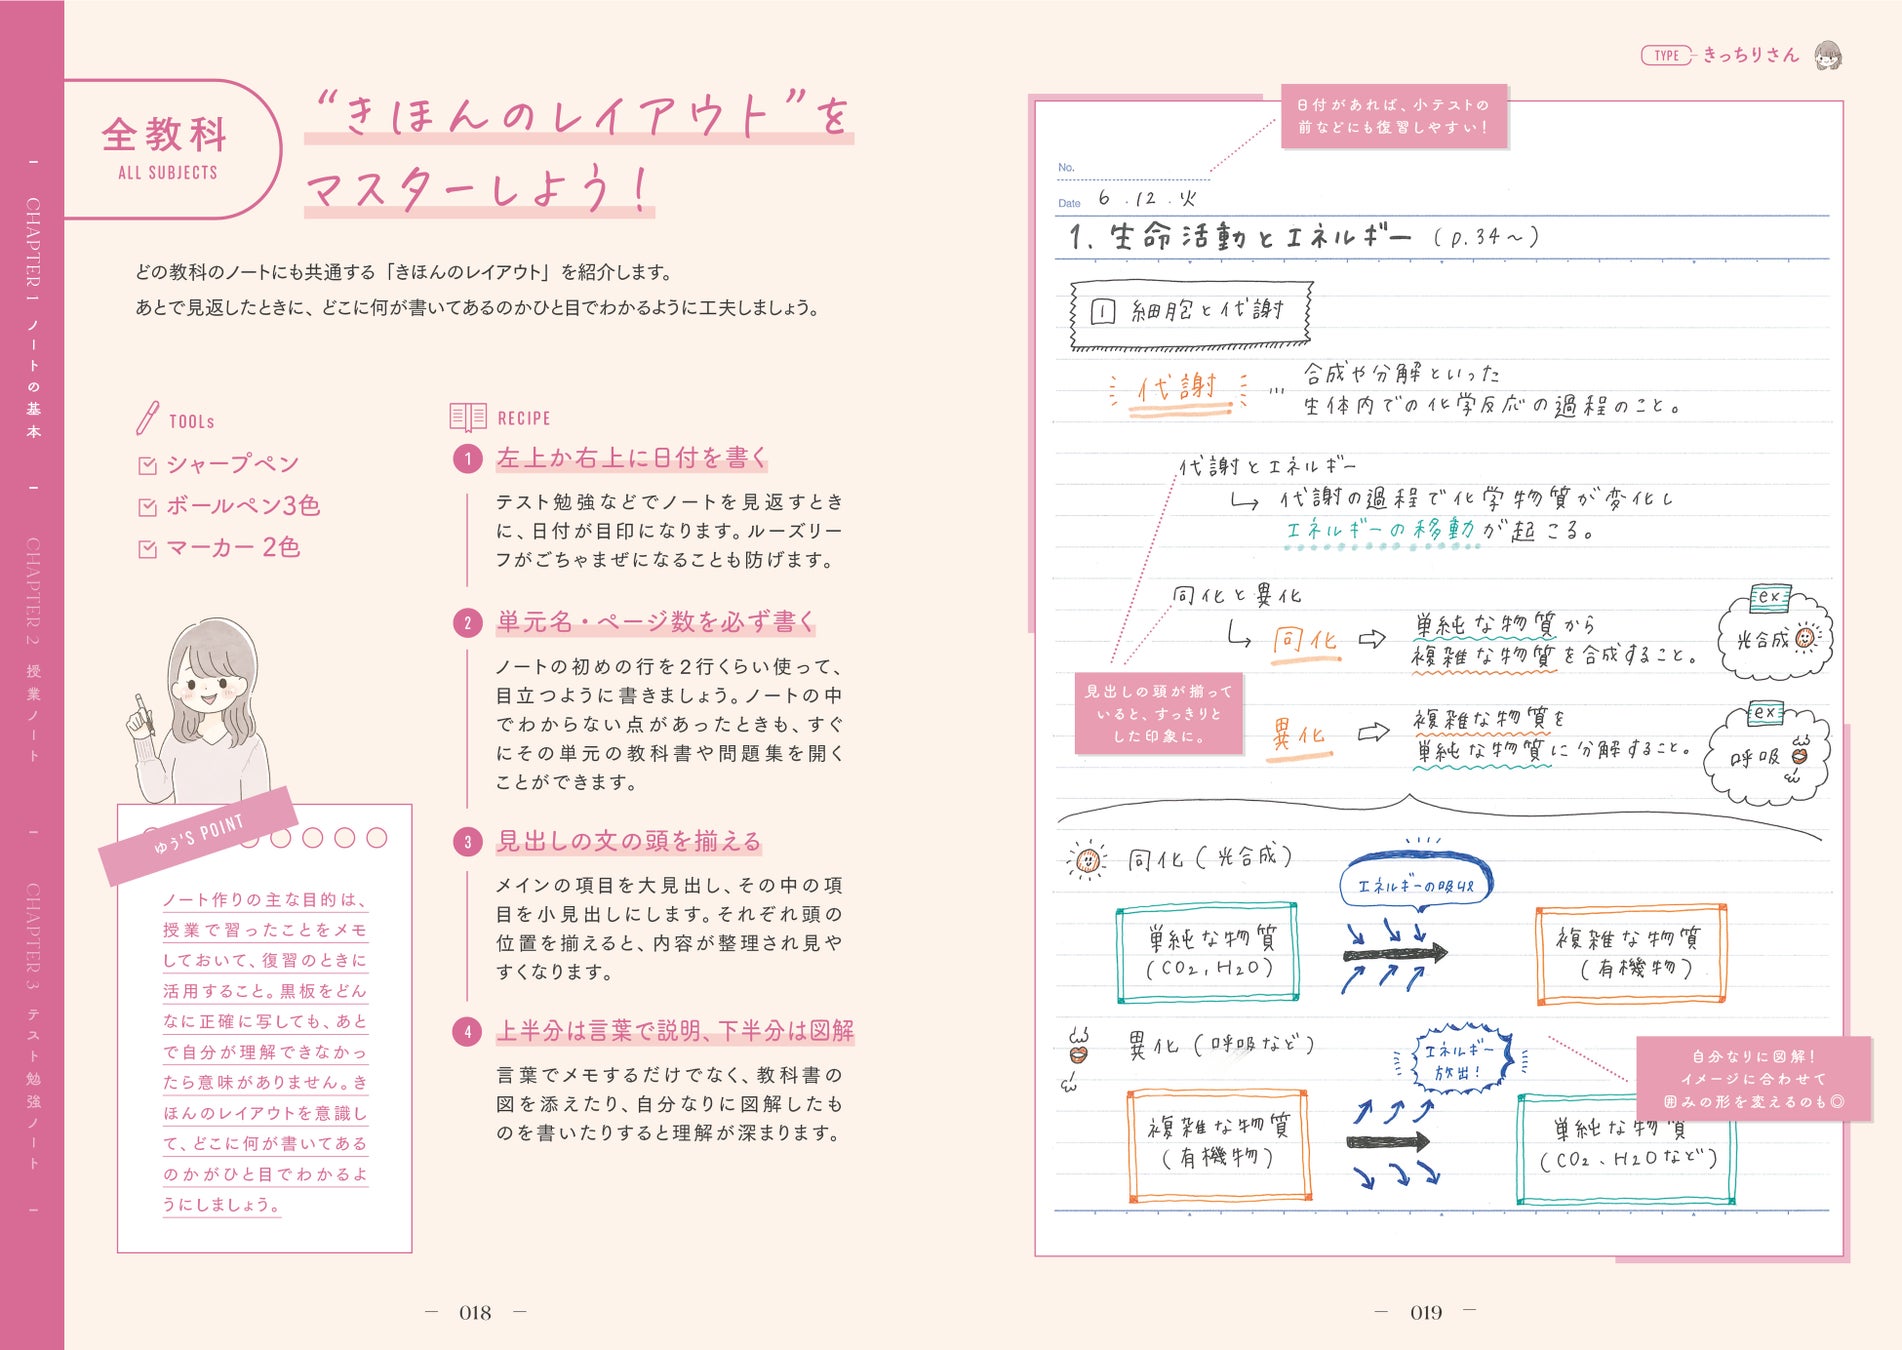 CHAPTER 1 ノートの基本
CHAPTER 2 授業ノート
CHAPTER 3 テスト勉強ノート
全教科
ALL SUBJECTS
“きほんのレイアウト”を
マスターしよう！
どの教科のノートにも共通する「きほんのレイアウト」を紹介します。
あとで見返したときに、どこに何が書いてあるのかひと目でわかるように工夫しましょう。
TOOLs
シャープペン
ボールペン3色
マーカー 2色
ゆう'S POINT
ノート作りの主な目的は、
授業で習ったことをメモ
しておいて、復習のときに
活用すること。黒板をどん
なに正確に写しても、あと
で自分が理解できなかっ
たら意味がありません。き
ほんのレイアウトを意識し
て、どこに何が書いてある
のかがひと目でわかるよ
うにしましょう。
RECIPE
1 左上か右上に日付を書く
テスト勉強などでノートを見返すとき
に、日付が目印になります。ルーズリー
フがごちゃまぜになることも防げます。
2 単元名・ページ数を必ず書く
ノートの初めの行を2行くらい使って、
目立つように書きましょう。ノートの中
でわからない点があったときも、すぐ
にその単元の教科書や問題集を開く
ことができます。
3 見出しの文の頭を揃える
メインの項目を大見出し、その中の項
目を小見出しにします。それぞれ頭の
位置を揃えると、内容が整理され見や
すくなります。
4 上半分は言葉で説明、下半分は図解
言葉でメモするだけでなく、教科書の
図を添えたり、自分なりに図解したも
のを書いたりすると理解が深まります。
018
TYPE きっちりさん
日付があれば、小テストの
前などにも復習しやすい！
No.
Date 6.12.火
1. 生命活動とエネルギー (p.34〜)
1 細胞と代謝
代謝 … 合成や分解といった
生体内での化学反応の過程のこと。
代謝とエネルギー
↳ 代謝の過程で化学物質が変化し
エネルギーの移動が起こる。
同化と異化
↳ 同化 ⇨ 単純な物質から
複雑な物質を合成すること。
ex
光合成
見出しの頭が揃って
いると、すっきりと
した印象に。
異化 ⇨ 複雑な物質を
単純な物質に分解すること。
ex
呼吸
同化(光合成)
エネルギーの吸収
単純な物質
(CO2, H2O)
複雑な物質
(有機物)
異化(呼吸など)
エネルギー
放出！
自分なりに図解！
イメージに合わせて
囲みの形を変えるのも◎
複雑な物質
(有機物)
単純な物質
(CO2、H2Oなど)
019